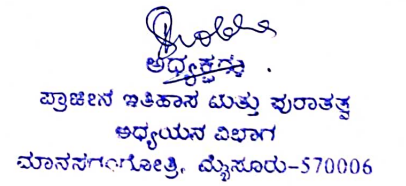 ಅಧ್ಯಕ್ಷರು
ಪ್ರಾಚೀನ ಇತಿಹಾಸ ಮತ್ತು ಪುರಾತತ್ವ
ಅಧ್ಯಯನ ವಿಭಾಗ
ಮಾನಸಗಂಗೋತ್ರಿ, ಮೈಸೂರು-570006